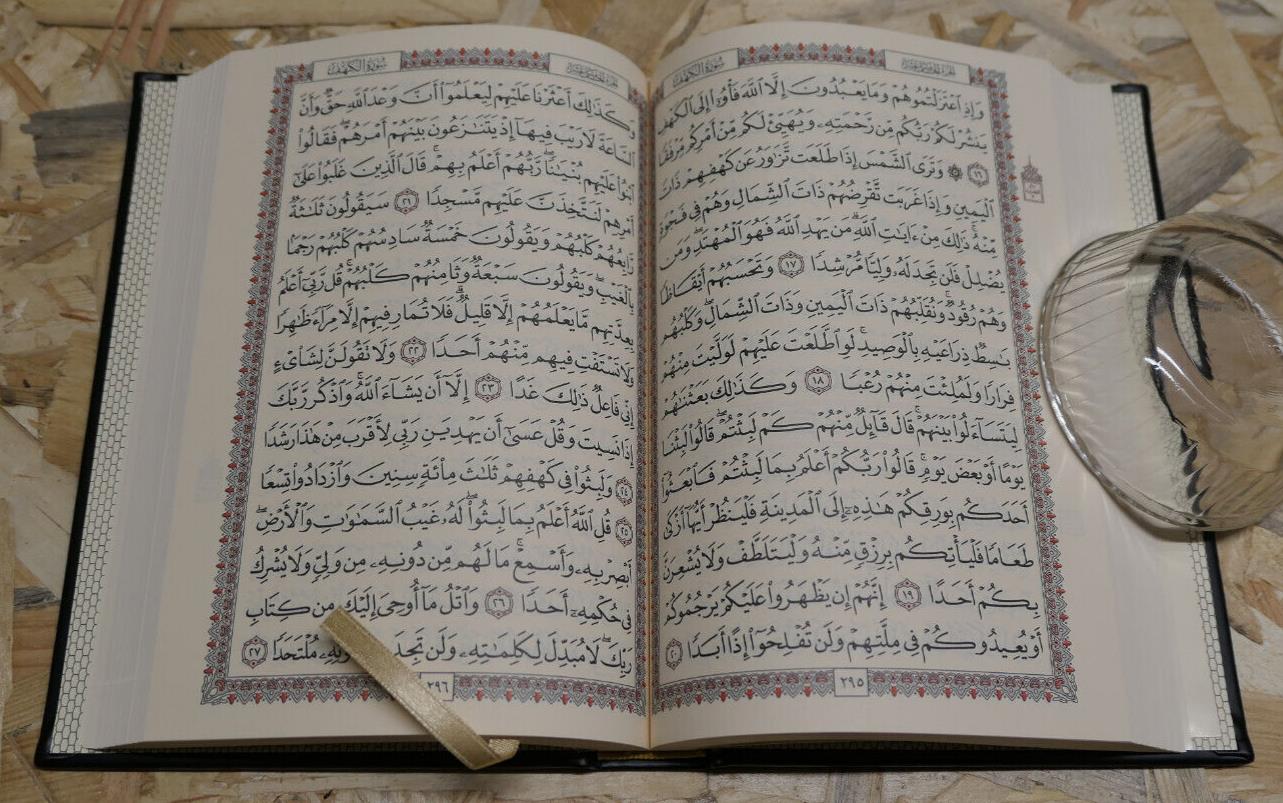 سورة الكهف
وَإِذِ ٱعْتَزَلْتُمُوهُمْ وَمَا يَعْبُدُونَ إِلَّا ٱللَّهَ فَأْوُۥٓا۟ إِلَى ٱلْكَهْفِ
يَنشُرْ لَكُمْ رَبُّكُم مِّن رَّحْمَتِهِۦ وَيُهَيِّئْ لَكُم مِّنْ أَمْرِكُم مِّرْفَقًا
١٦ ۞ وَتَرَى ٱلشَّمْسَ إِذَا طَلَعَت تَّزَٰوَرُ عَن كَهْفِهِمْ ذَاتَ
ٱلْيَمِينِ وَإِذَا غَرَبَت تَّقْرِضُهُمْ ذَاتَ ٱلشِّمَالِ وَهُمْ فِى فَجْوَةٍ
مِّنْهُ ۚ ذَٰلِكَ مِنْ ءَايَٰتِ ٱللَّهِ ۗ مَن يَهْدِ ٱللَّهُ فَهُوَ ٱلْمُهْتَدِ ۖ وَمَن
يُضْلِلْ فَلَن تَجِدَ لَهُۥ وَلِيًّا مُّرْشِدًا ١٧ وَتَحْسَبُهُمْ أَيْقَاظًا
وَهُمْ رُقُودٌ ۚ وَنُقَلِّبُهُمْ ذَاتَ ٱلْيَمِينِ وَذَاتَ ٱلشِّمَالِ ۖ وَكَلْبُهُم
بَٰسِطٌ ذِرَاعَيْهِ بِٱلْوَصِيدِ ۚ لَوِ ٱطَّلَعْتَ عَلَيْهِمْ لَوَلَّيْتَ مِنْهُمْ
فِرَارًا وَلَمُلِئْتَ مِنْهُمْ رُعْبًا ١٨ وَكَذَٰلِكَ بَعَثْنَٰهُمْ
لِيَتَسَآءَلُوا۟ بَيْنَهُمْ ۚ قَالَ قَآئِلٌ مِّنْهُمْ كَمْ لَبِثْتُمْ ۖ قَالُوا۟ لَبِثْنَا
يَوْمًا أَوْ بَعْضَ يَوْمٍ ۚ قَالُوا۟ رَبُّكُمْ أَعْلَمُ بِمَا لَبِثْتُمْ فَٱبْعَثُوٓا۟
أَحَدَكُم بِوَرِقِكُمْ هَٰذِهِۦٓ إِلَى ٱلْمَدِينَةِ فَلْيَنظُرْ أَيُّهَآ أَزْكَىٰ
طَعَامًا فَلْيَأْتِكُم بِرِزْقٍ مِّنْهُ وَلْيَتَلَطَّفْ وَلَا يُشْعِرَنَّ
بِكُمْ أَحَدًا ١٩ إِنَّهُمْ إِن يَظْهَرُوا۟ عَلَيْكُمْ يَرْجُمُوكُمْ
أَوْ يُعِيدُوكُمْ فِى مِلَّتِهِمْ وَلَن تُفْلِحُوٓا۟ إِذًا أَبَدًا ٢٠
٢٩٥
سورة الكهف
وَكَذَٰلِكَ أَعْثَرْنَا عَلَيْهِمْ لِيَعْلَمُوٓا۟ أَنَّ وَعْدَ ٱللَّهِ حَقٌّ وَأَنَّ
ٱلسَّاعَةَ لَا رَيْبَ فِيهَآ إِذْ يَتَنَٰزَعُونَ بَيْنَهُمْ أَمْرَهُمْ ۖ فَقَالُوا۟
ٱبْنُوا۟ عَلَيْهِم بُنْيَٰنًا ۖ رَّبُّهُمْ أَعْلَمُ بِهِمْ ۚ قَالَ ٱلَّذِينَ غَلَبُوا۟ عَلَىٰٓ
أَمْرِهِمْ لَنَتَّخِذَنَّ عَلَيْهِم مَّسْجِدًا ٢١ سَيَقُولُونَ ثَلَٰثَةٌ
رَّابِعُهُمْ كَلْبُهُمْ وَيَقُولُونَ خَمْسَةٌ سَادِسُهُمْ كَلْبُهُمْ رَجْمًۢا
بِٱلْغَيْبِ ۖ وَيَقُولُونَ سَبْعَةٌ وَثَامِنُهُمْ كَلْبُهُمْ ۚ قُل رَّبِّىٓ أَعْلَمُ
بِعِدَّتِهِم مَّا يَعْلَمُهُمْ إِلَّا قَلِيلٌ ۗ فَلَا تُمَارِ فِيهِمْ إِلَّا مِرَآءً ظَٰهِرًا
وَلَا تَسْتَفْتِ فِيهِم مِّنْهُمْ أَحَدًا ٢٢ وَلَا تَقُولَنَّ لِشَا۟ىْءٍ
إِنِّى فَاعِلٌ ذَٰلِكَ غَدًا ٢٣ إِلَّآ أَن يَشَآءَ ٱللَّهُ ۚ وَٱذْكُر رَّبَّكَ
إِذَا نَسِيتَ وَقُلْ عَسَىٰٓ أَن يَهْدِيَنِ رَبِّى لِأَقْرَبَ مِنْ هَٰذَا رَشَدًا
٢٤ وَلَبِثُوا۟ فِى كَهْفِهِمْ ثَلَٰثَ مِا۟ئَةٍ سِنِينَ وَٱزْدَادُوا۟ تِسْعًا
٢٥ قُلِ ٱللَّهُ أَعْلَمُ بِمَا لَبِثُوا۟ ۖ لَهُۥ غَيْبُ ٱلسَّمَٰوَٰتِ وَٱلْأَرْضِ ۖ
أَبْصِرْ بِهِۦ وَأَسْمِعْ ۚ مَا لَهُم مِّن دُونِهِۦ مِن وَلِىٍّ وَلَا يُشْرِكُ
فِى حُكْمِهِۦٓ أَحَدًا ٢٦ وَٱتْلُ مَآ أُوحِىَ إِلَيْكَ مِن كِتَابِ
رَبِّكَ ۖ لَا مُبَدِّلَ لِكَلِمَٰتِهِۦ وَلَن تَجِدَ مُلْتَحَدًا ٢٧
٢٩٦